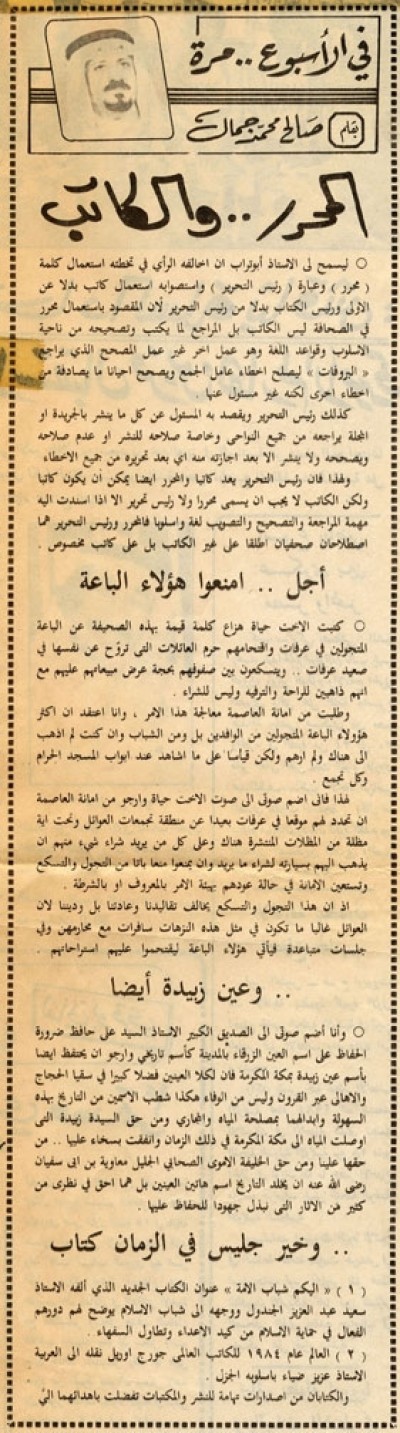 في الأسبوع .. مرة
بقلم صالح محمد جمال
المحرر .. والكاتب
○ ليسمح لى الاستاذ أبوتراب ان اخالفه الرأي في تخطئته استعمال كلمة
( محرر ) وعبارة ( رئيس التحرير ) واستصوابه استعمال كاتب بدلا عن
الاولى ورئيس الكتاب بدلا من رئيس التحرير لأن المقصود باستعمال محرر
في الصحافة ليس الكاتب بل المراجع لما يكتب وتصحيحه من ناحية
الاسلوب وقواعد اللغة وهو عمل اخر غير عمل المصحح الذي يراجع
« البروفات » ليصلح اخطاء عامل الجمع ويصحح احيانا ما يصادفة من
اخطاء اخرى لكنه غير مسئول عنها .
كذلك رئيس التحرير ويقصد به المسئول عن كل ما ينشر بالجريدة او
المجلة يراجعه من جميع النواحي وخاصة صلاحه للنشر او عدم صلاحه
ويصححه ولا ينشر الا بعد اجازته منه اي بعد تحريره من جميع الاخطاء
ولهذا فان رئيس التحرير يعد كاتبا والمحرر ايضا يمكن أن يكون كاتبا
ولكن الكاتب لا يجب ان يسمى محررا ولا رئيس تحرير الا اذا اسندت اليه
مهمة المراجعة والتصحيح والتصويب لغة واسلوبا فالمحرر ورئيس التحرير هما
اصطلاحان صحفيان اطلقا على غير الكاتب بل على كاتب مخصوص .
أجل .. امنعوا هؤلاء الباعة
○ كتبت الاخت حياة هزاع كلمة قيمة بهذه الصحيفة عن الباعة
المتجولين في عرفات واقتحامهم حرم العائلات التى تروّح عن نفسها في
صعيد عرفات .. ويتسكعون بين صفوفهم بحجة عرض مبيعاتهم عليهم مع
انهم ذاهبين للراحة والترفيه وليس للشراء .
وطلبت من امانة العاصمة معالجة هذا الامر ، وانا اعتقد ان اكثر
هؤولاء الباعة المتجولين من الوافدين بل ومن الشباب وان كنت لم اذهب
الى هناك ولم ارهم ولكن قياسا على ما اشاهد عند ابواب المسجد الحرام
وكل تجمع .
لهذا فانى اضم صوتى الى صوت الاخت حياة وارجو من امانة العاصمة
ان تحدد لهم موقعا في عرفات بعيدا عن منطقة تجمعات العوائل وتحت اية
مظلة من المظلات المنتشرة هناك وعلى كل من يريد شراء شيء منهم ان
يذهب اليهم بسيارته لشراء ما يريد وان يمنعوا منعا باتا من التجول والتسكع
وتستعين الامانة في حالة عودهم بهيئة الامر بالمعروف او بالشرطة .
اذ ان هذا التجول والتسكع يخالف تقاليدنا وعادتنا بل وديننا لان
العوائل غالبا ما تكون في مثل هذه النزهات سافرات مع محارمهن وفي
جلسات متباعدة فيأتي هؤلاء الباعة ليقتحموا عليهم استراحاتهم .
.. وعين زبيدة أيضا
○ وأنا أضم صوتى الى الصديق الكبير الاستاذ السيد على حافظ ضرورة
الحفاظ على اسم العين الزرقاء بالمدينة كأسم تاريخي وارجو ان يحتفظ ايضا
بأسم عين زبيدة بمكة المكرمة فان لكلا العينين فضلا كبيرا في سقيا الحجاج
والاهالى عبر القرون وليس من الوفاء هكذا شطب الاسمين من التاريخ بهذه
السهولة وابدالهما بمصلحة المياه والمجاري ومن حق السيدة زبيدة التى
اوصلت المياه الى مكة المكرمة في ذلك الزمان وانفقت بسخاء عليها .. من
حقها علينا ومن حق الخليفة الاموى الصحابي الجليل معاوية بن ابى سفيان
رضى الله عنه ان يخلد التاريخ اسم هاتين العينين بل هما احق في نظرى من
كثير من الاثار التى نبذل جهودا للحفاظ عليها .
.. وخير جليس في الزمان كتاب
( ١ ) « اليكم شباب الامة » عنوان الكتاب الجديد الذي ألفه الاستاذ
سعيد عبد العزيز الجندول ووجهه الى شباب الاسلام يوضح لهم دورهم
الفعال في حماية الاسلام من كيد الاعداء وتطاول السفهاء .
( ٢ ) العالم عام ١٩٨٤ للكاتب العالمى جورج اوريل نقله الى العربية
الاستاذ عزيز ضياء باسلوبه الجزل .
والكتابان من اصدارات تهامة للنشر والمكتبات تفضلت باهدائهما الىّ